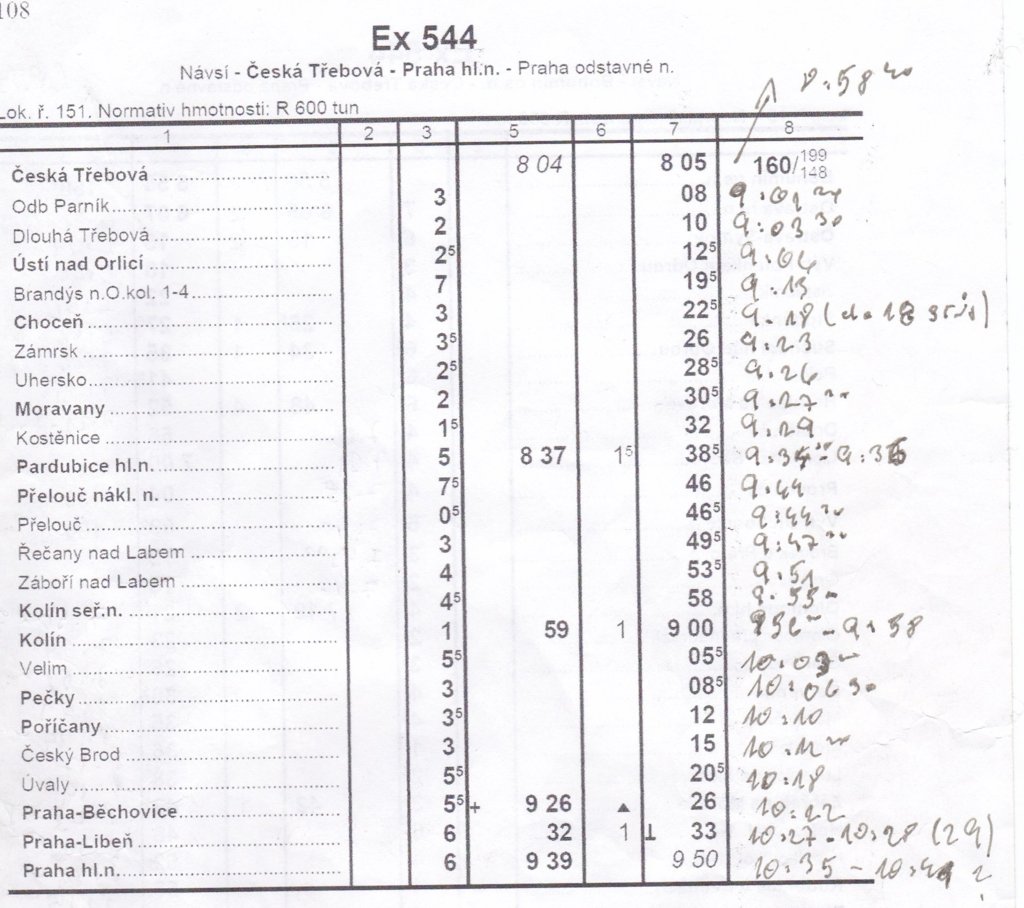 108
Ex 544
Návsí - Česká Třebová - Praha hl.n. - Praha odstavné n.
8:58
Lok. ř. 151. Normativ hmotnosti: R 600 tun
1 2 3 5 6 7 8
Česká Třebová 8 04 8 05 160/199 148
Odb Parník 3 08
Dlouhá Třebová 2 10 9:03 30
Ústí nad Orlicí 2⁵ 12⁵ 9:06
Brandýs n.O.kol. 1-4 7 19⁵ 9:15
Choceň 3 22⁵ 9:18
Zámrsk 3⁵ 26 9:23
Uhersko 2⁵ 28⁵ 9:26
Moravany 2 30⁵ 9:27
Kostěnice 1⁵ 32 9:29
Pardubice hl.n. 5 8 37 1⁵ 38⁵
Přelouč nákl. n. 7⁵ 46 9:44
Přelouč 0⁵ 46⁵ 9:44
Řečany nad Labem 3 49⁵ 9:47
Záboří nad Labem 4 53⁵ 9:51
Kolín seř.n. 4⁵ 58
Kolín 1 59 1 9 00 9:58
Velim 5⁵ 05⁵ 10:03
Pečky 3 08⁵ 10:06 30
Poříčany 3⁵ 12 10:10
Český Brod 3 15 10:12
Úvaly 5⁵ 20⁵ 10:18
Praha-Běchovice 5⁵ + 9 26 ▲ 26 10:22
Praha-Libeň 6 32 1 ⊥ 33 10:27-10:28 (29)
Praha hl.n. 6 9 39 9 50 10:35 - 10:41 ?